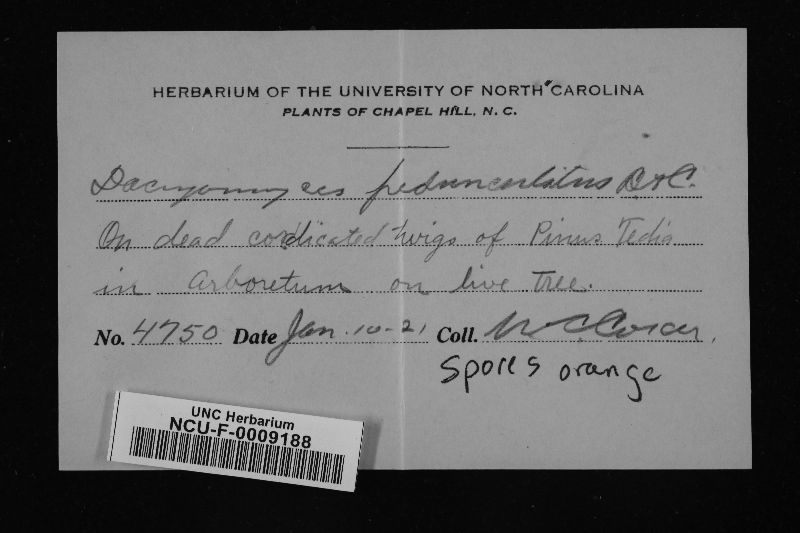 HERBARIUM OF THE UNIVERSITY OF NORTH CAROLINA
PLANTS OF CHAPEL HILL, N. C.
Dacryomyces pedunculatus B & C.
On dead corticated twigs of Pinus Teda
in arboretum on live tree.
No. 4750 Date Jan. 10-21 Coll. W C Coker.
Spores orange
UNC Herbarium
NCU-F-0009188